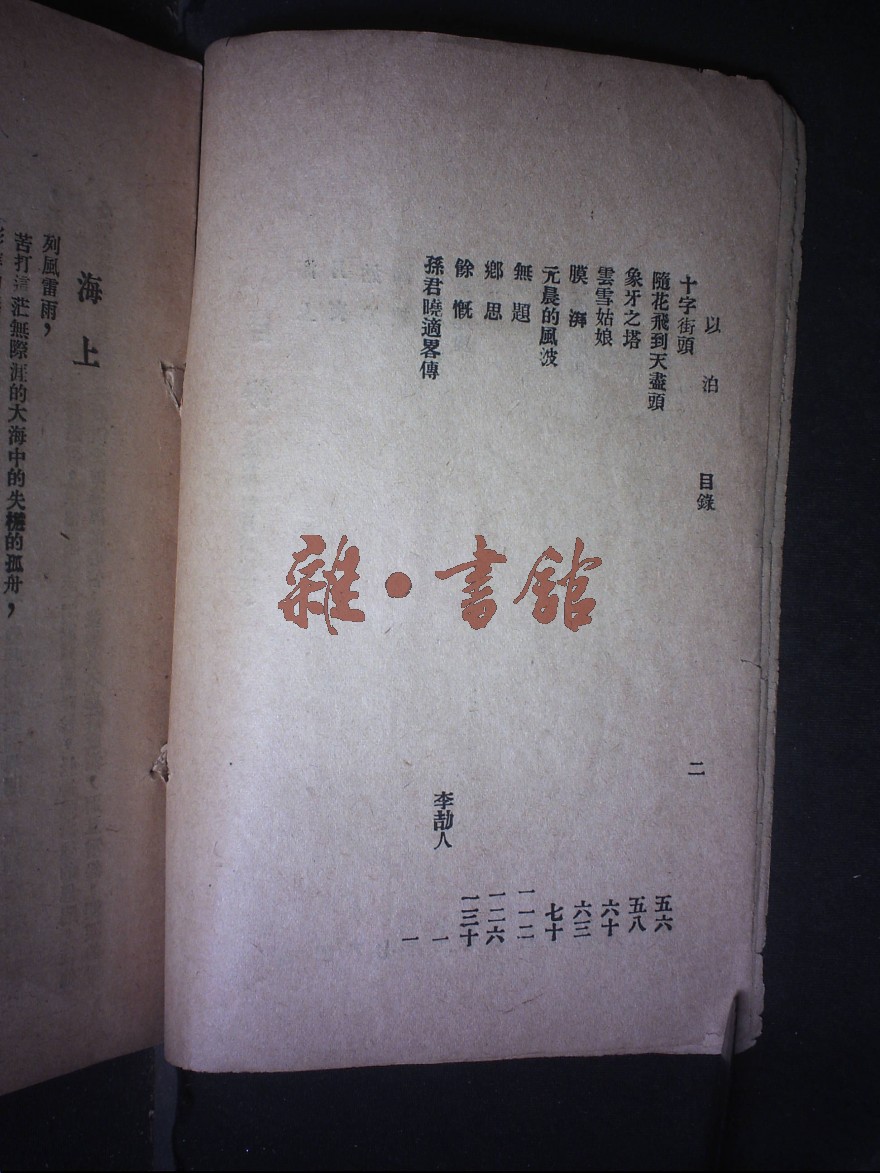 以泊 目錄 二
十字街頭 五六
隨花飛到天盡頭 五八
象牙之塔 六十
雲雪姑娘 六三
膜湃 七十
元晨的風波 一一二
無題 一二六
鄉思 一三十
餘慨 李劼人 一
孫君曉適畧傳 一
雜·書館
海上
列風雷雨，
苦打這茫無際涯的大海中的失的孤舟，